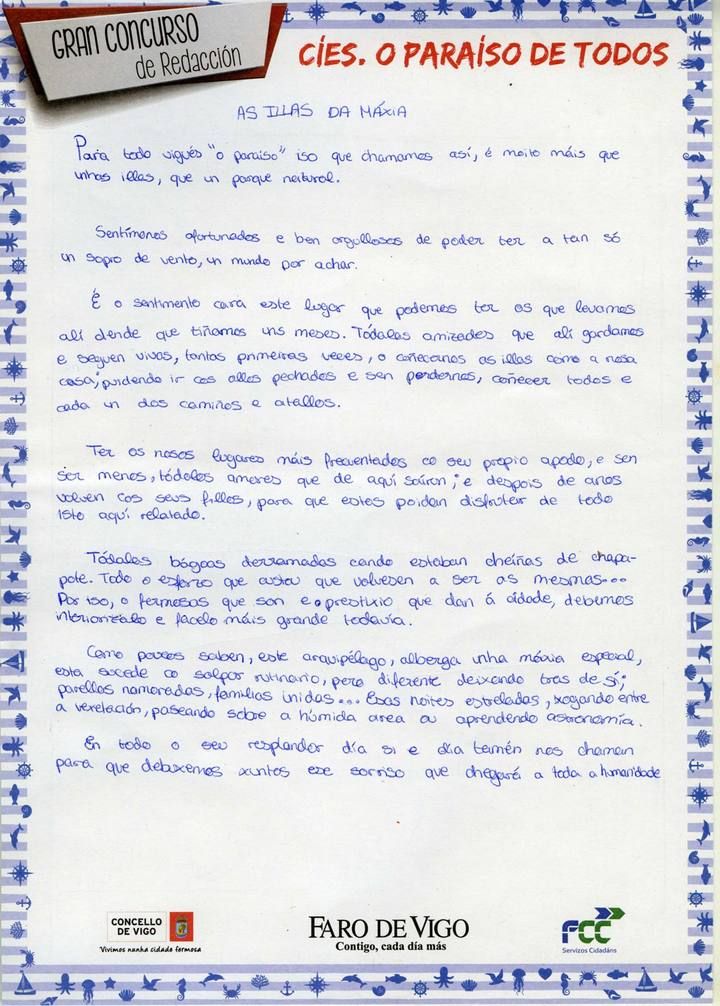 GRAN CONCURSO
de Redacción
CÍES. O PARAÍSO DE TODOS
AS ILLAS DA MÁXIA
Para todo vigués "o paraíso" iso que chamamos así, é moito máis que
unhas illas, que un parque natural.
Sentímonos afortunados e ben orgullosos de poder ter a tan só
un sopro de vento, un mundo por achar.
É o sentimento cara este lugar que podemos ter os que levamos
alí dende que tiñamos uns meses. Tódalas amizades que alí gardamos
e seguen vivas, tantas primeiras veces, o coñecernos as illas como a nosa
casa; pudendo ir cos ollos pechados e sen perdernos, coñecer todos e
cada un dos camiños e atallos.
Ter os nosos lugares máis frecuentados co seu propio apodo, e sen
ser menos, tódolos amores que de aquí saíron; e despois de anos
volven cos seus fillos, para que estes poidan disfrutar de todo
isto aquí relatado.
Tódalas bágoas derramadas cando estaban cheíñas de chapa-
pote. Todo o esforzo que custou que volvesen a ser as mesmas...
Por iso, o fermosas que son e o prestixio que dan á cidade, debemos
interiorizalo e facelo máis grande todavía.
Como poucos saben, este arquipélago, alberga unha máxia especial,
esta sucede co solpor rutinario, pero diferente deixando tras de sí;
parellas namoradas, familias unidas... Esas noites estreladas, xogando entre
a vexetación, paseando sobre a húmida area ou aprendendo astronomía.
En todo o seu resplandor día si e día tamén nos chaman
para que debuxemos xuntos ese sorriso que chegará a toda a humanidade
CONCELLO
DE VIGO
Vivimos nunha cidade fermosa
FARO DE VIGO
Contigo, cada día más
FCC
Servizos Cidadáns